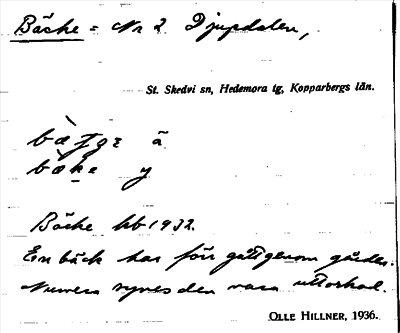 Bäcke = Nr 2 Djupdalen,
St. Skedvi sn, Hedemora tg, Kopparbergs län.
ä
y
Bäcke kb 1932.
En bäck har förr gått genom gården.
Numera synes den vara uttorkad.
OLLE HILLNER, 1936.